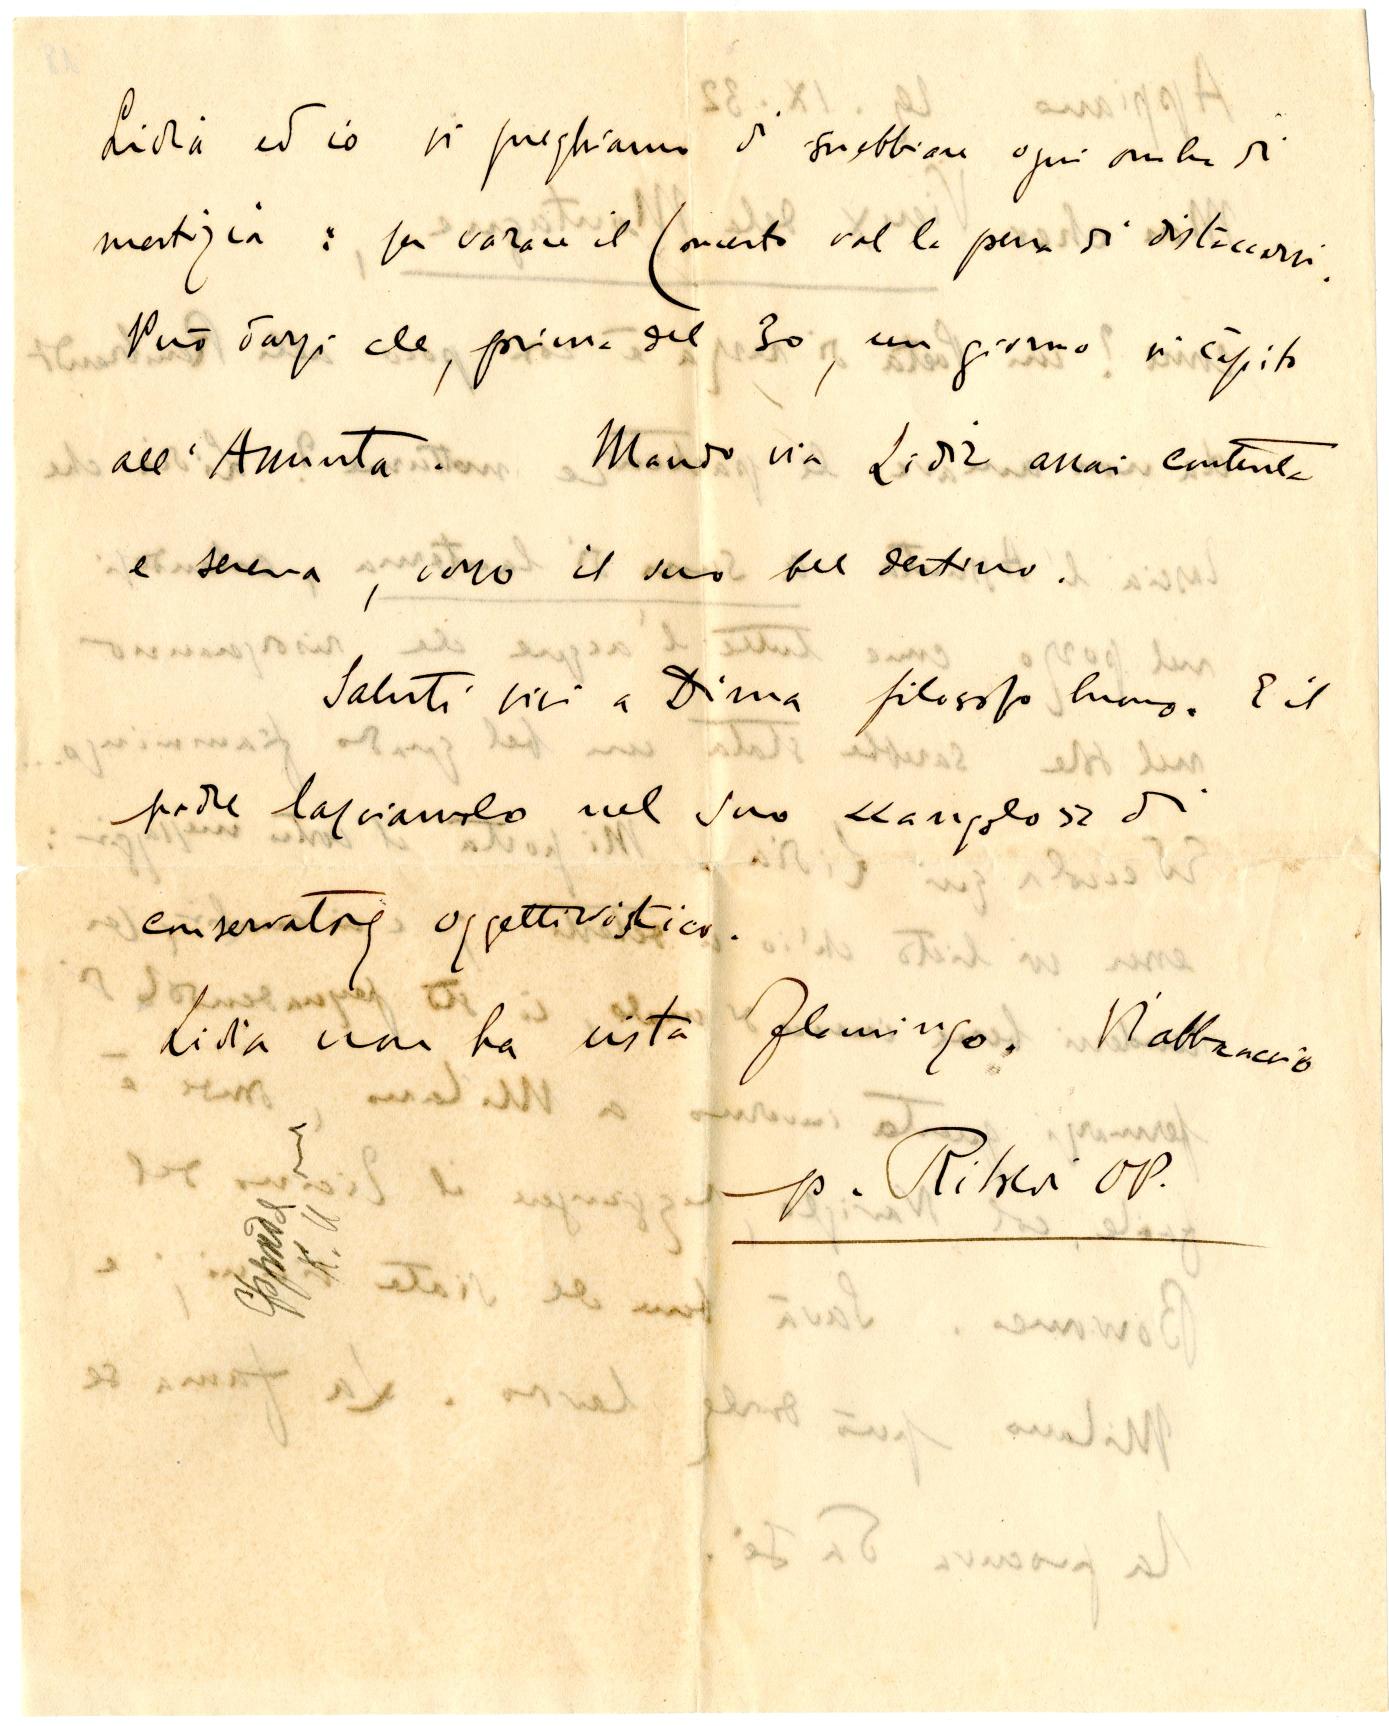 Lidia ed io vi preghiamo di snebbiare ogni ombra di
mestizia : per varare il Concerto val la pena di distaccarsi.
Può darsi che, prima del 30, un giorno vi càpito
all'Assunta. Mando via Lidia assai contenta
e serena, verso il suo bel destino.
Saluti vivi a Dima filosofo buono. E il
padre lasciamolo nel suo di
conservatore oggettivistico.
Lidia non ha vista Flamingo. V'abbraccio
p. OP.